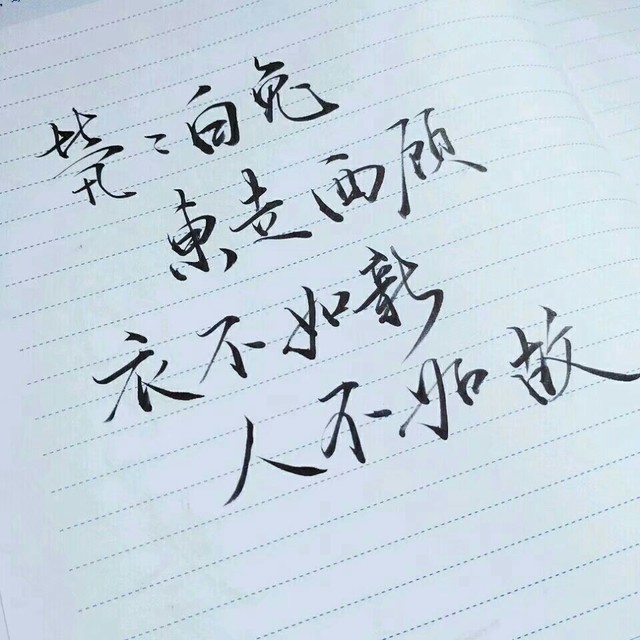 茕々白兔
東走西顾
衣不如新
人不如故